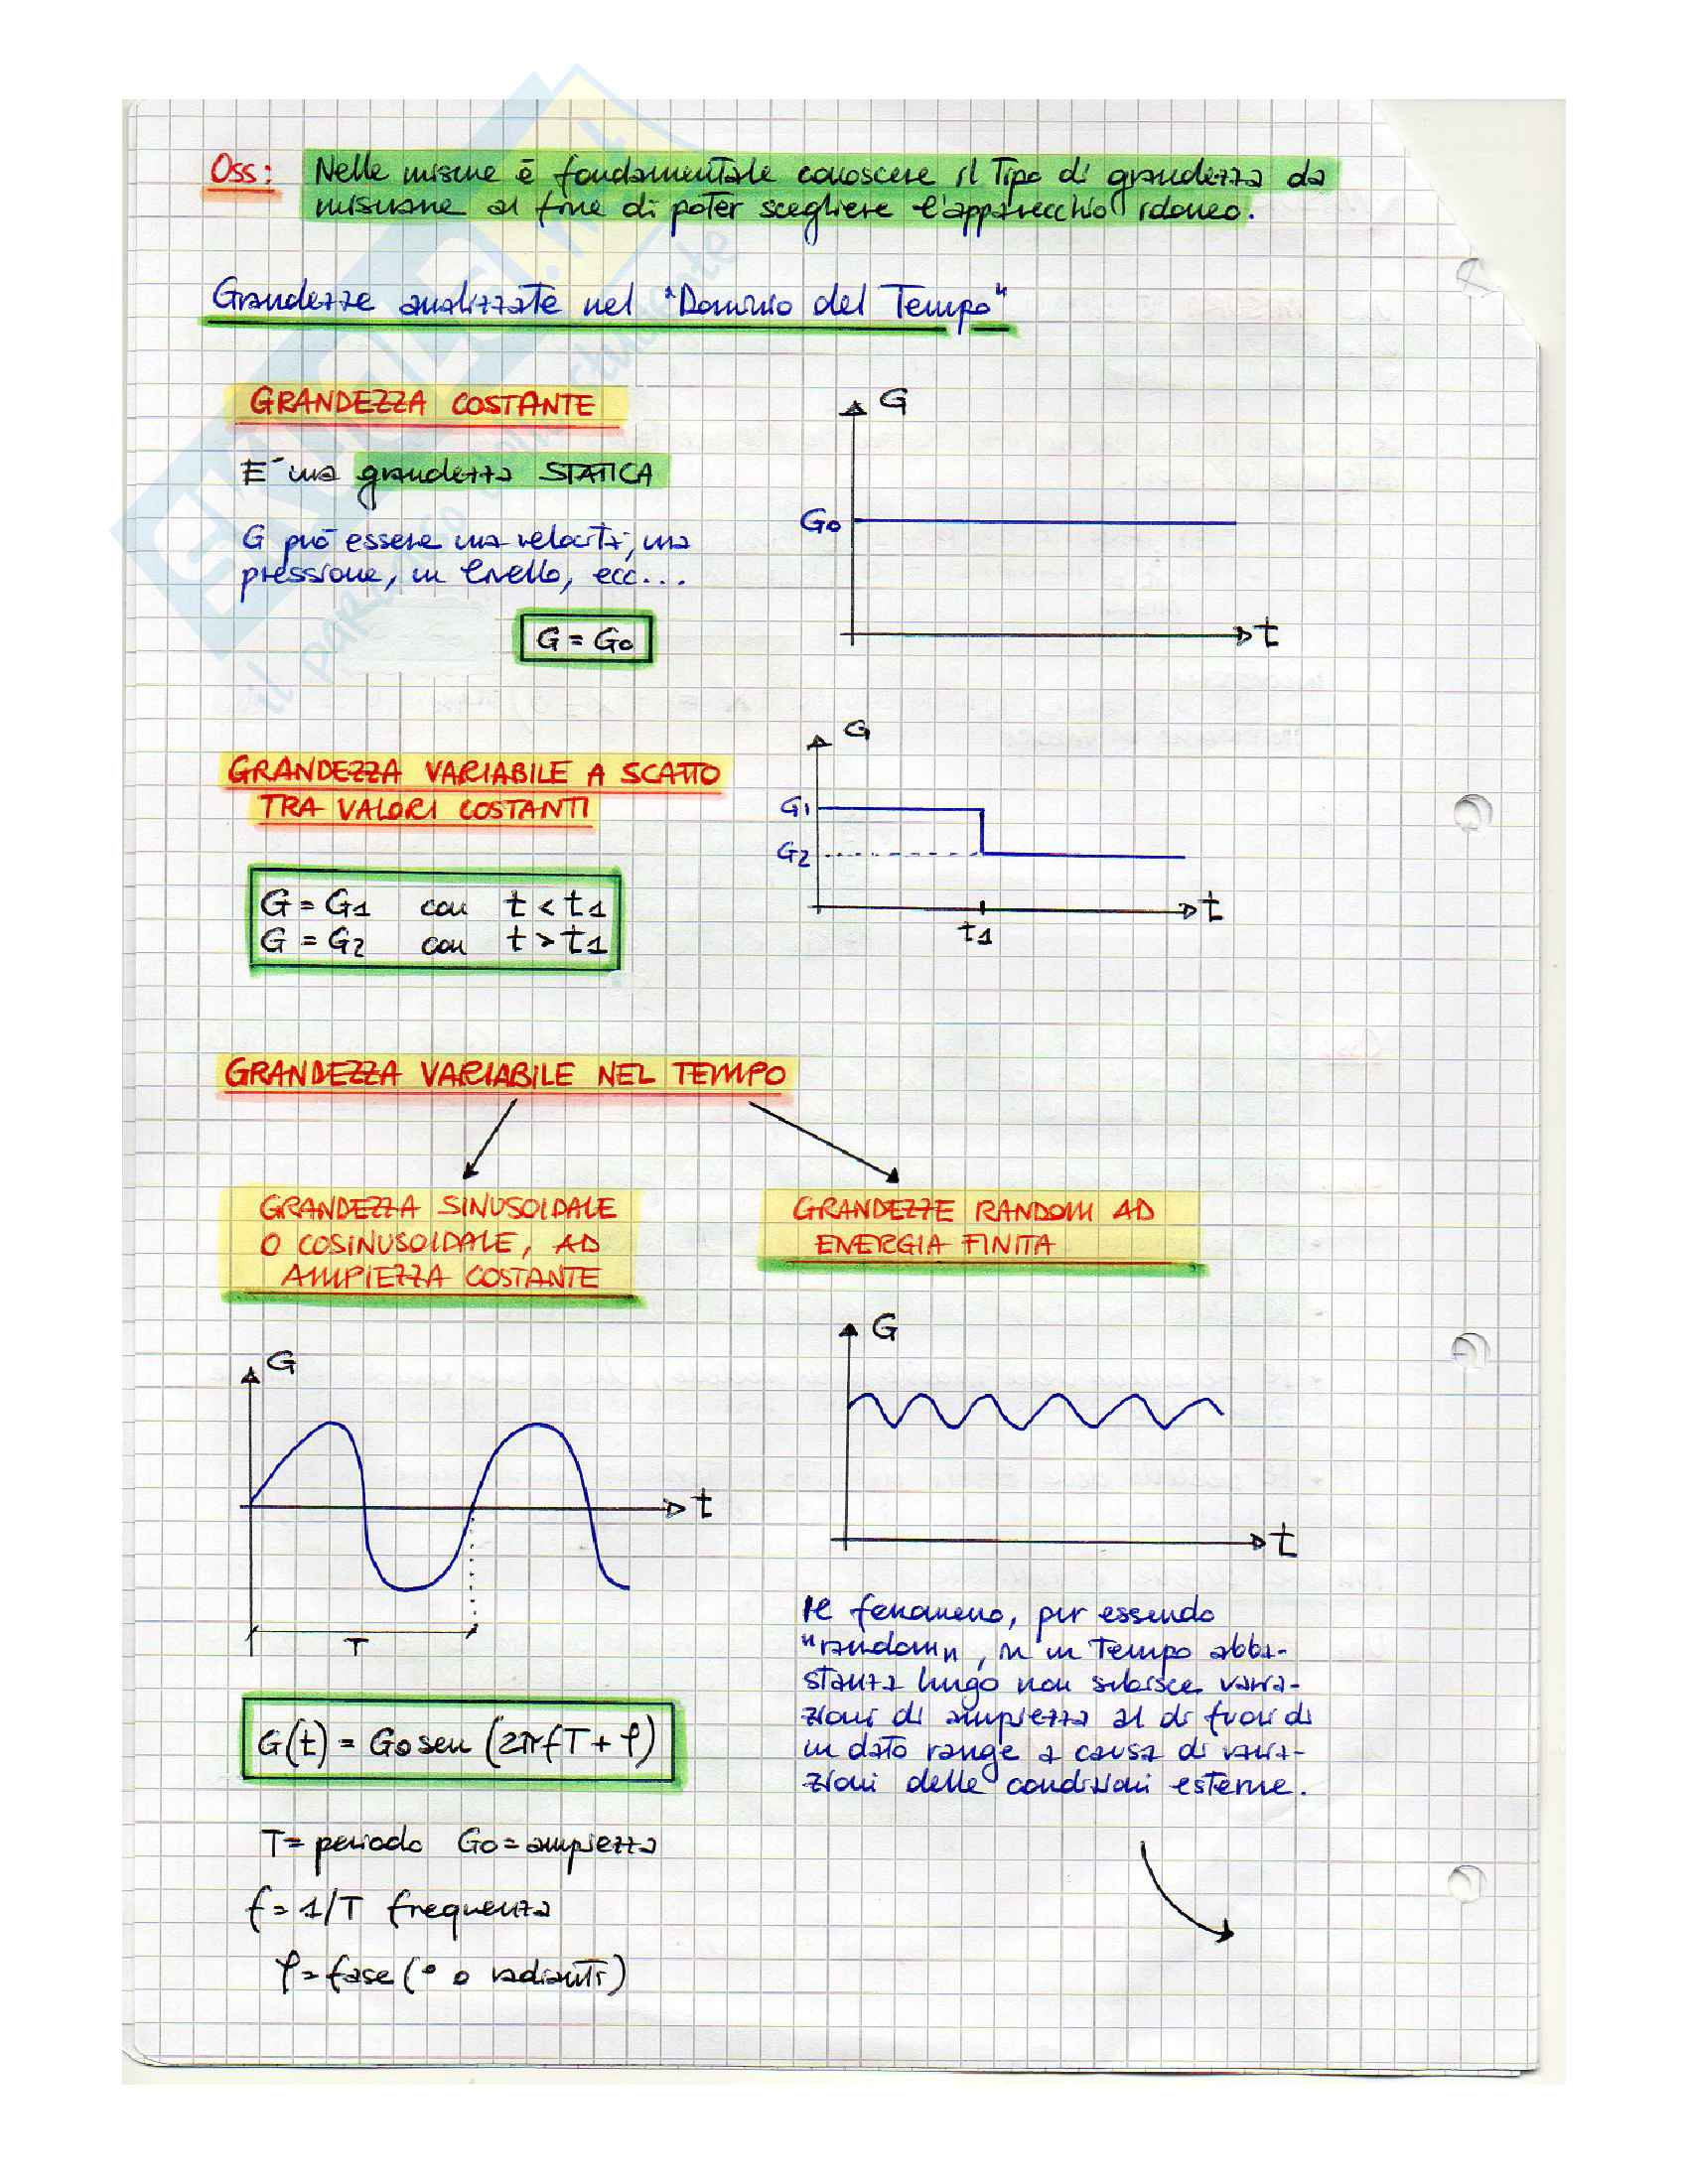 Oss: Nelle misure è fondamentale conoscere il tipo di grandezza da
misurare al fine di poter scegliere l'apparecchio idoneo.
Grandezze analizzate nel "Dominio del Tempo"
GRANDEZZA COSTANTE
E' una grandezza STATICA
G può essere una velocità, una
pressione, un livello, ecc...
G = G0
G
G0
t
GRANDEZZA VARIABILE A SCATTO
TRA VALORI COSTANTI
G = G1 con t < t1
G = G2 con t > t1
G
G1
G2
t
t1
GRANDEZZA VARIABILE NEL TEMPO
GRANDEZZA SINUSOIDALE
O COSINUSOIDALE, AD
AMPIEZZA COSTANTE
G
t
T
G(t) = G0 sen (2πfT + φ)
T = periodo G0 = ampiezza
f = 1/T frequenza
φ = fase (° o radianti)
GRANDEZZE RANDOM AD
ENERGIA FINITA
G
t
Il fenomeno, pur essendo
"random", in un tempo abba-
stanza lungo non subisce varia-
zioni di ampiezza al di fuori di
un dato range a causa di varia-
zioni delle condizioni esterne.
SKUOLA.net